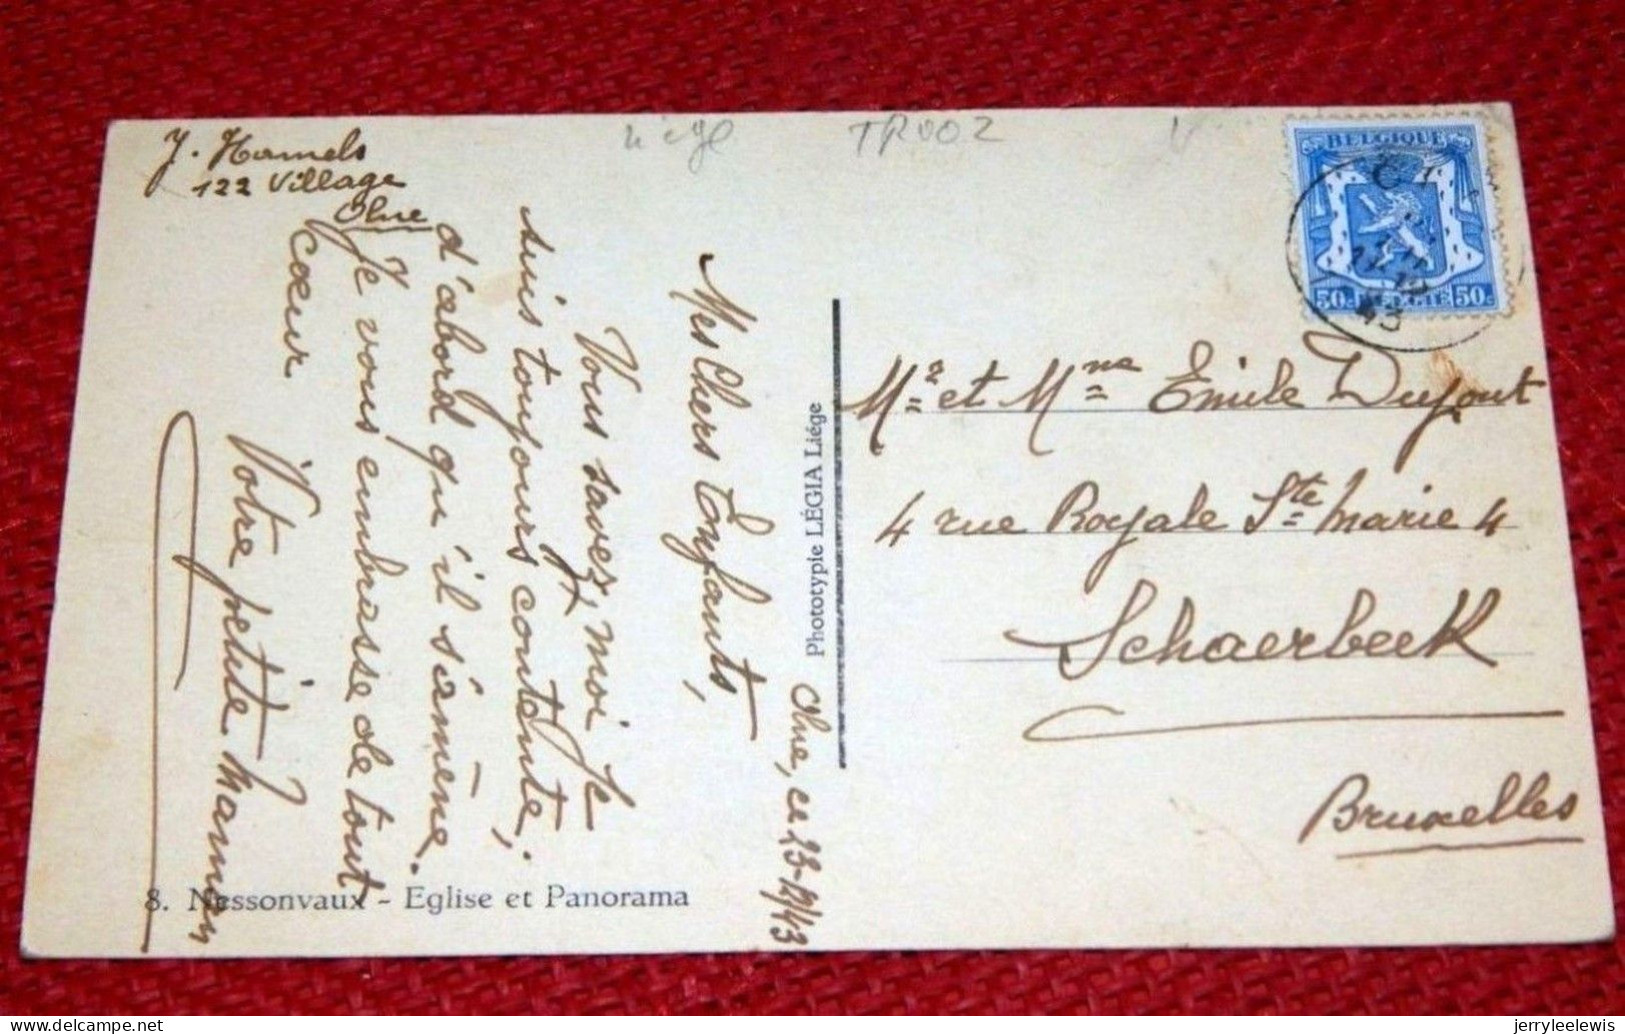 J. Hamels
122 Village
Olne
Liége
TROOZ
BELGIQUE
50c BELGIË 50c
43
Olne, ce 23-12/43
Mes Chers Enfants,
Vous savez, moi je
suis toujours contente,
d'abord qu'il s'amène.
Je vous embrasse de tout
cœur
Votre petite maman
Phototypie LÉGIA Liége
Mr et Mme Emile Dufont
4 rue Royale Ste Marie 4
Schaerbeek
Bruxelles
8. Nessonvaux - Eglise et Panorama
jerryleelewis
delcampe.net